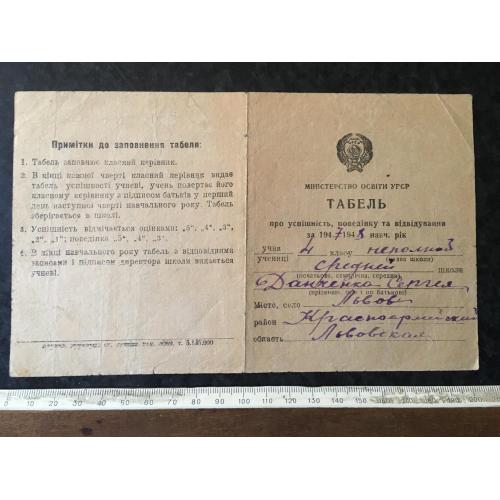 Примітки до заповнення табеля:
1. Табель заповнює класний керівник.
2. В кінці кожної чверті класний керівник видає
табель успішності учневі, учень повертає його
класному керівнику з підписом батьків у перший
день наступної чверті навчального року. Табель
зберігається в школі.
3. Успішність відмічається оцінками: „5", „4", „3",
„2", „1"; поведінка „5", „4", „3".
4. В кінці навчального року табель з відповідними
записами і підписом директора школи видається
учневі.
т. 5.845.000
МІНІСТЕРСТВО ОСВІТИ УРСР
ТАБЕЛЬ
про успішність, поведінку та відвідування
за 1947-1948 навч. рік
учня 4 класу неполной
учениці средней школи
(назва школи)
(початкове, семирічна, середня)
Данченко Сергея
(прізвище, ім'я і по батькові)
Місто, село Львов
район Красноармейский
область Львовская
0 10 20 30 40 50 60 70 80 90 100 110 120 130 140 150 160 170 180 190 200